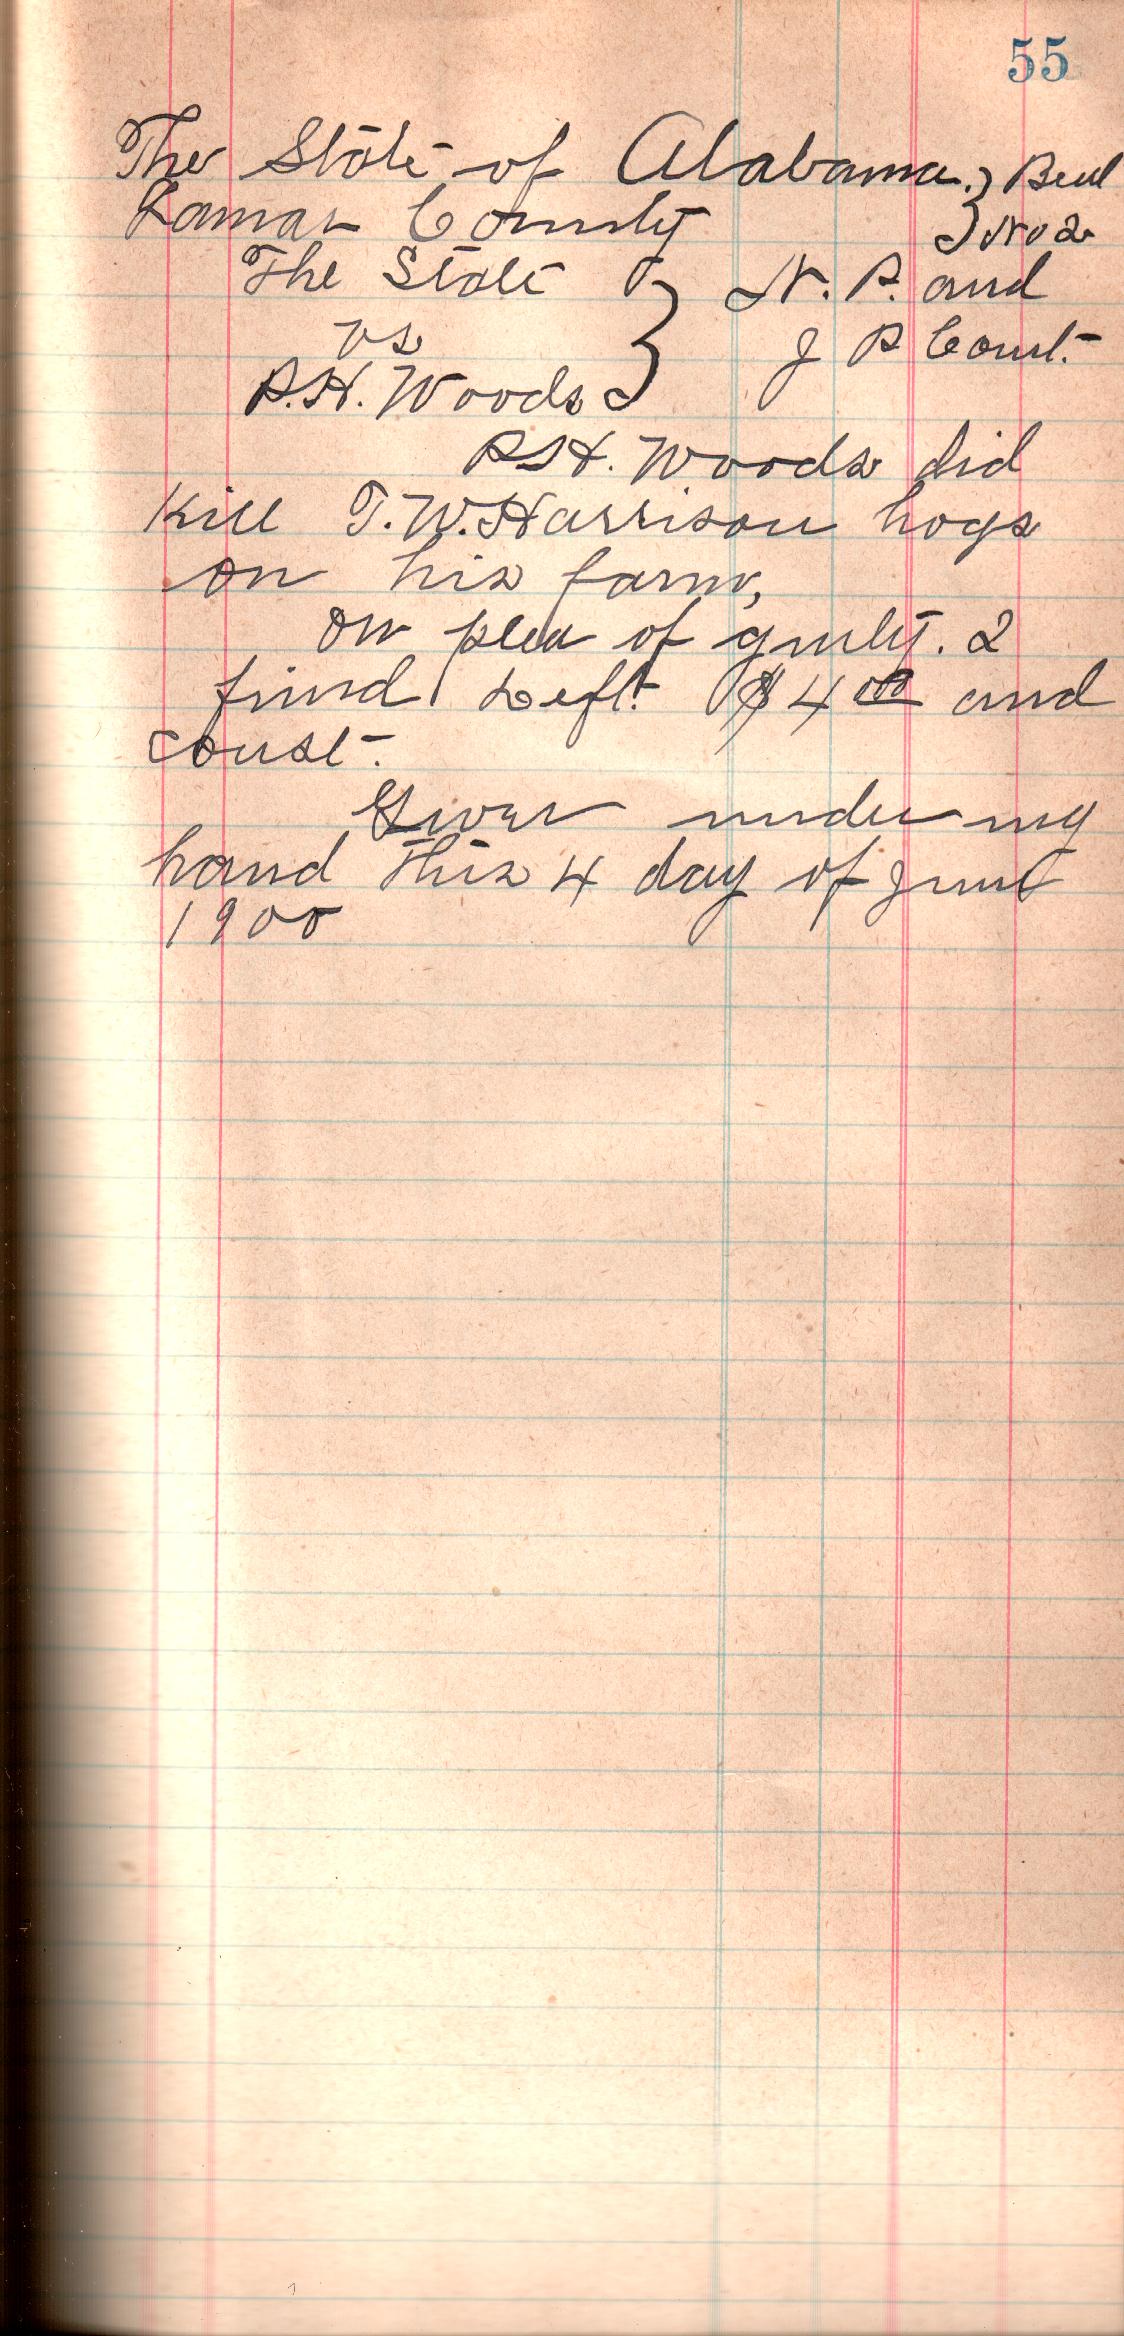 55
The State of Alabama. } Beat
Lamar County } No 2
The State } N. P. and
vs } J P Court.
P.H. Woods }
P.H. Woods did
Kill T.W. Harrison hogs
on his farm,
on plea of guilty. I
find Deft. $4 00 and
coust.
Given under my
hand this 4 day of June
1900